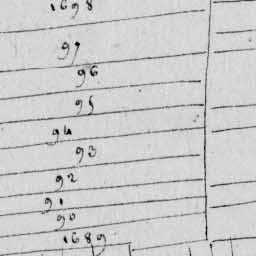 1698
97
96
95
94
93
92
91
90
1689